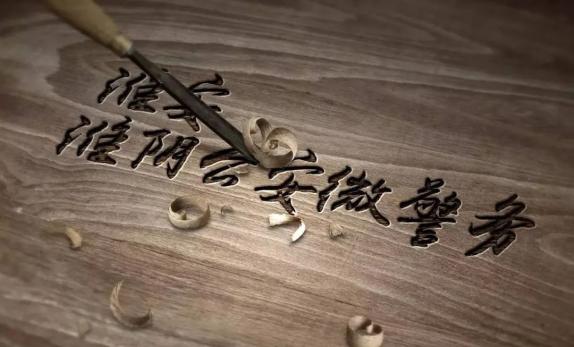 淮安
淮阴公安微警务